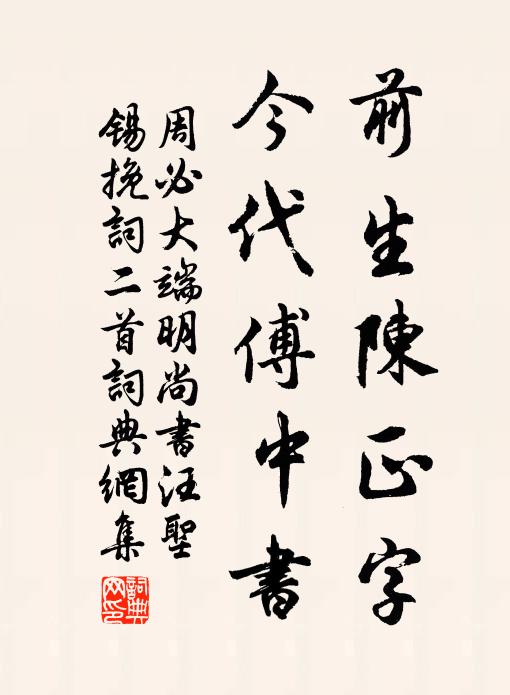 前生陳正字
今代傅中書
周必大端明尚書汪聖
錫挽詞二首詞典網集
詞典網印